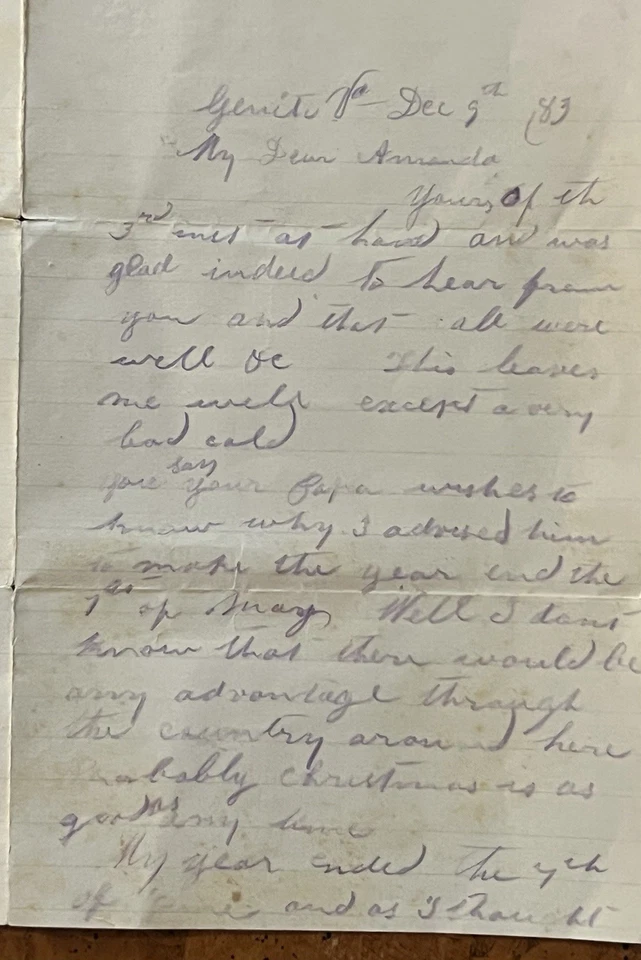 Genito Va Dec 9th /83
My Dear Amanda
Yours of th
3rd inst at hand and was
glad indeed to hear from
you and that all were
well &c This leaves
me well except a very
bad cold
you say your Papa wishes to
know why I advised him
to make the year end the
1st of May Well I dont
know that there would be
any advantage through
the country around here
Probably Christmas is as
good as any time
My year ended the 7th
of June and as I thought